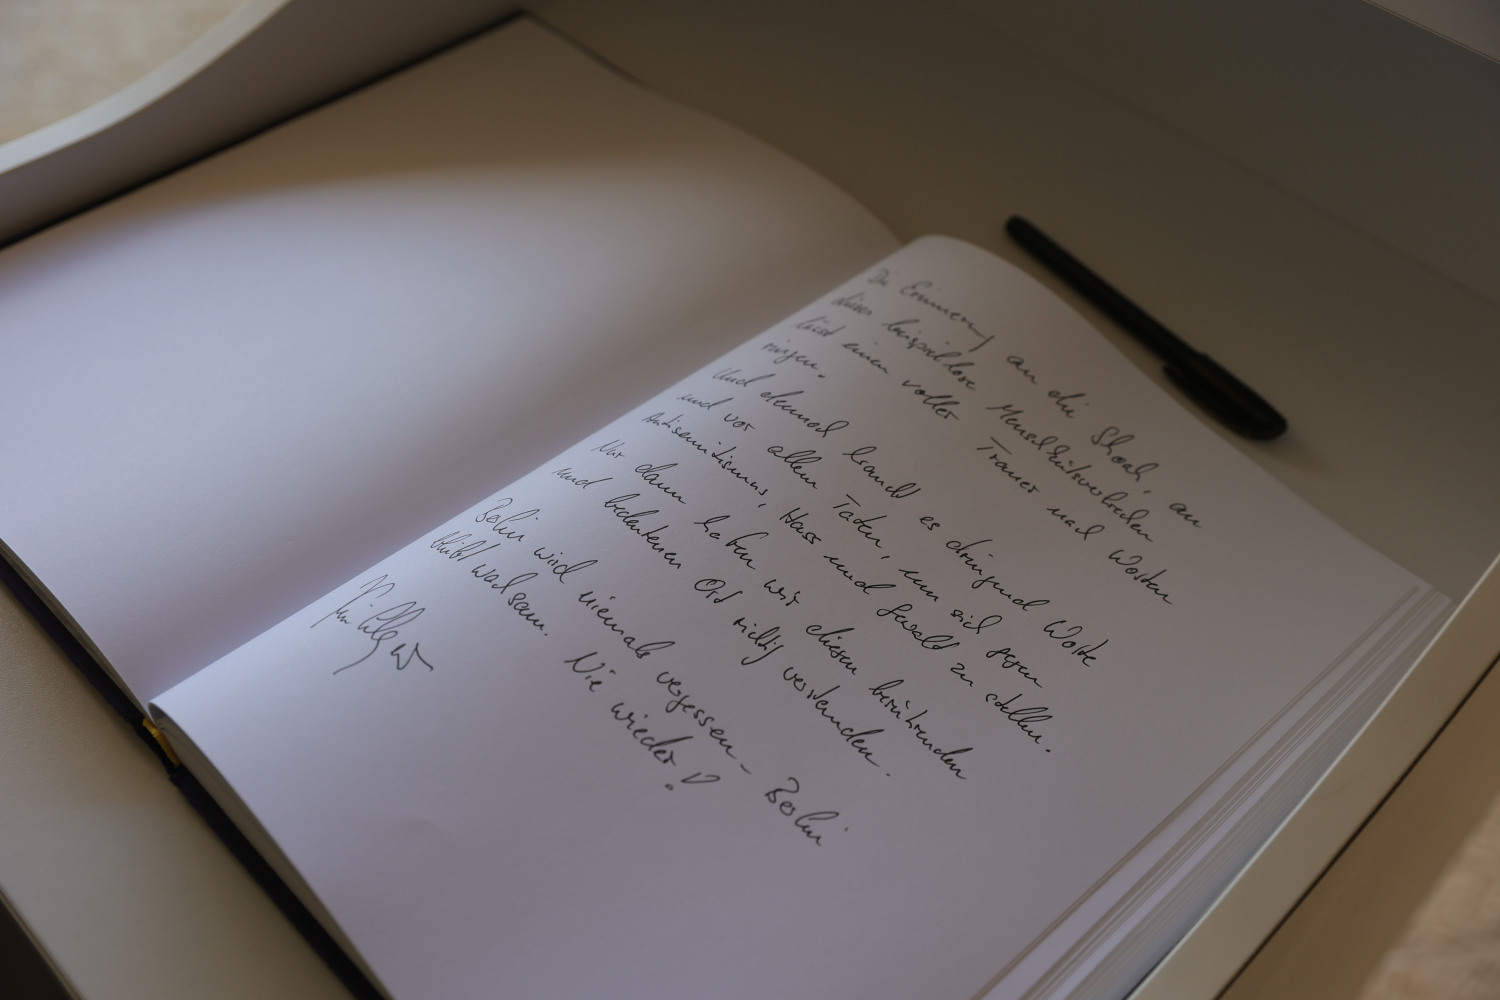 Das Erinnern, an die Shoah, an
dieses beispiellose Menschheitsverbrechen
lässt einen voller Trauer nach Worten
ringen.
Und dennoch braucht es dringend Worte
und vor allem Taten, um sich gegen
Antisemitismus, Hass und Gewalt zu stellen.
Nur dann haben wir diesen berührenden
und bedeutenen Ort richtig verstanden.
Berlin wird niemals vergessen – Berlin
bleibt wachsam. Nie wieder!